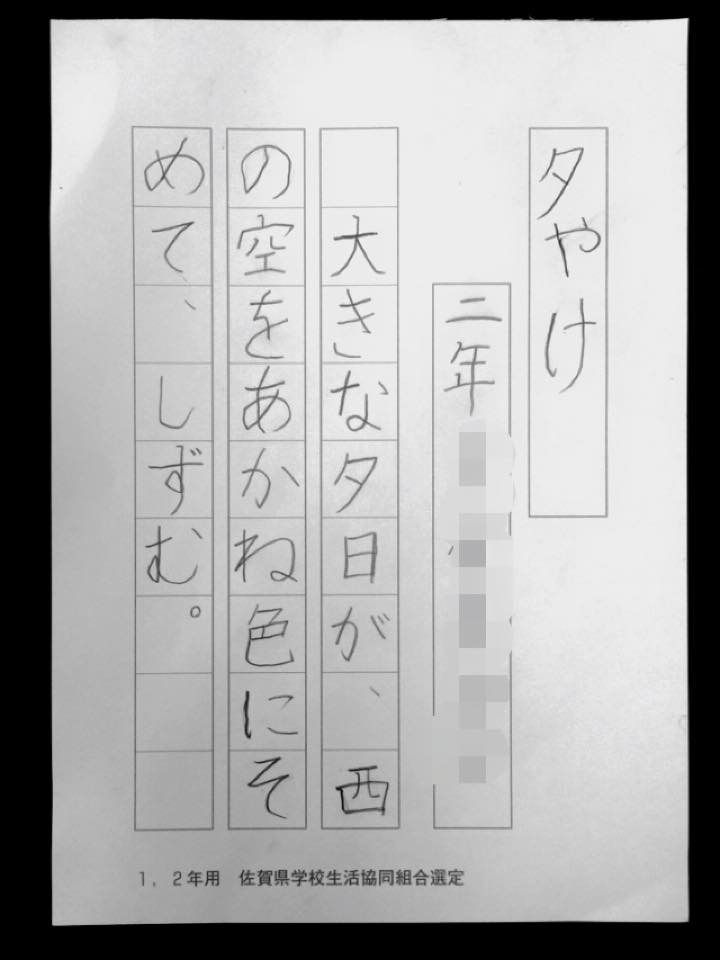 夕やけ
二年
大きな夕日が、西
の空をあかね色にそ
めて、しずむ。
1，2年用　佐賀県学校生活協同組合選定